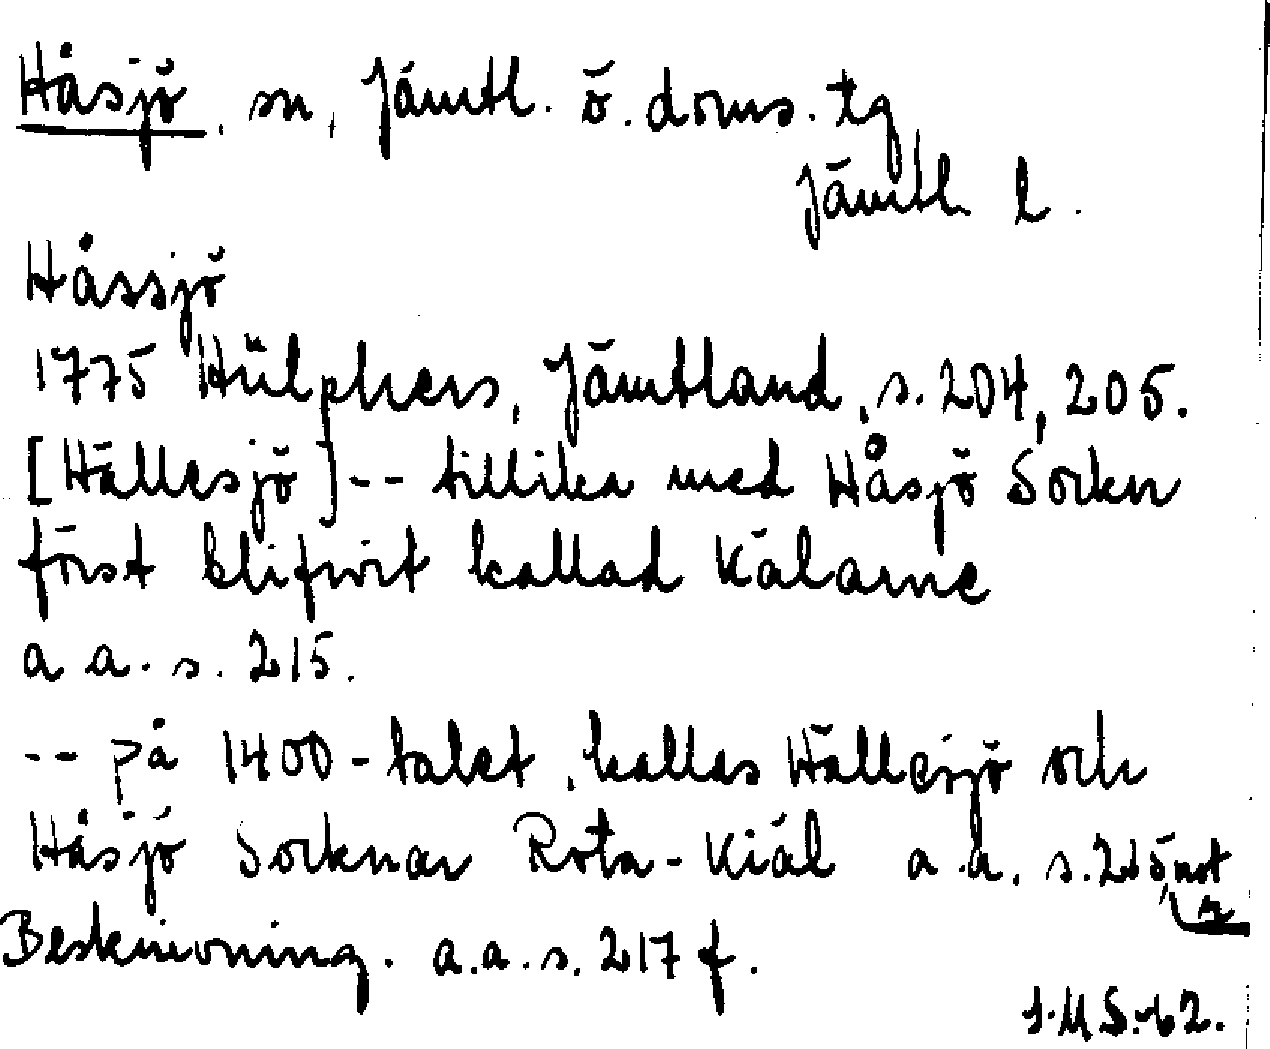 Håsjö, sn, Jämtl. ö. doms. tg
Jämtl. l.
Håssjö
1775 Hülphers, Jämtland, s. 204, 205.
[Hällesjö] -- tillika med Håsjö Sockn
först blifwit kallad Kälarne
a a. s. 215.
-- på 1400-talet, kallas Hällesjö och
Håsjö Socknar Rota-Kiäl a. a. s. 215, not
Beskrivning. a.a. s. 217 f.
J.M.S.-62.